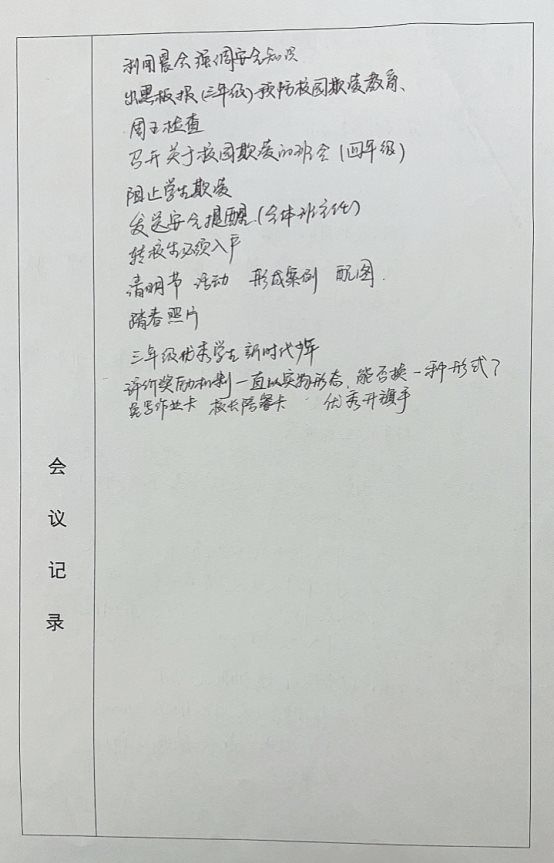 利用晨会强调安全知识
出黑板报(三年级)预防校园欺凌教育、
周五检查
召开关于校园欺凌的班会(四年级)
阻止学生欺凌
发送安全提醒(全体班主任)
转校生必须入户
清明节 活动 形成案例 配图.
踏春照片
三年级优秀学生 新时代少年
评价奖励机制一直以实物形态,能否换一种形式?
免写作业卡 校长陪餐卡 优秀升旗手
会
议
记
录